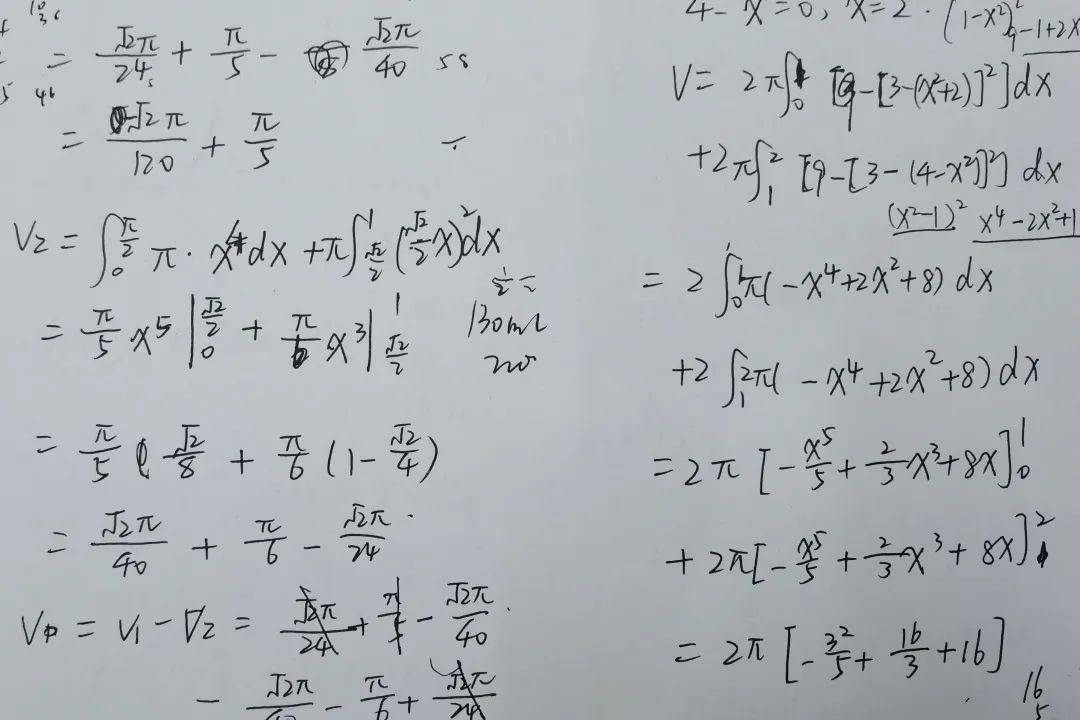 = √2π/24 + π/5 - √2π/40
58
= √2π/120 + π/5
V2 = ∫₀^(π/2) π · x⁴dx + π∫_(√2/2)^1 (√2/2 x)²dx
= π/5 x⁵ |₀^(√2/2) + π/6 x³ |_(√2/2)^1
130ml
= π/5 · √2/8 + π/6 (1 - √2/4)
= √2π/40 + π/6 - √2π/24
V中 = V1 - V2 = √2π/24 + π/5 - √2π/40
- √2π/40 - π/6 + √2π/24
4 - x = 0, x = 2. (1-x²)²
9-1+2x
V = 2π∫₀¹ [9-[3-(x²+2)]²]dx
+2π∫₁² [9-[3-(4-x²)]²] dx
(x²-1)² x⁴-2x²+1
= 2∫₀¹π(-x⁴+2x²+8) dx
+2∫₁²π(-x⁴+2x²+8) dx
= 2π [-x⁵/5 + 2/3 x³+8x]₀¹
+ 2π[-x⁵/5 + 2/3 x³ + 8x]₁²
= 2π [-32/5 + 16/3 + 16]
16
5